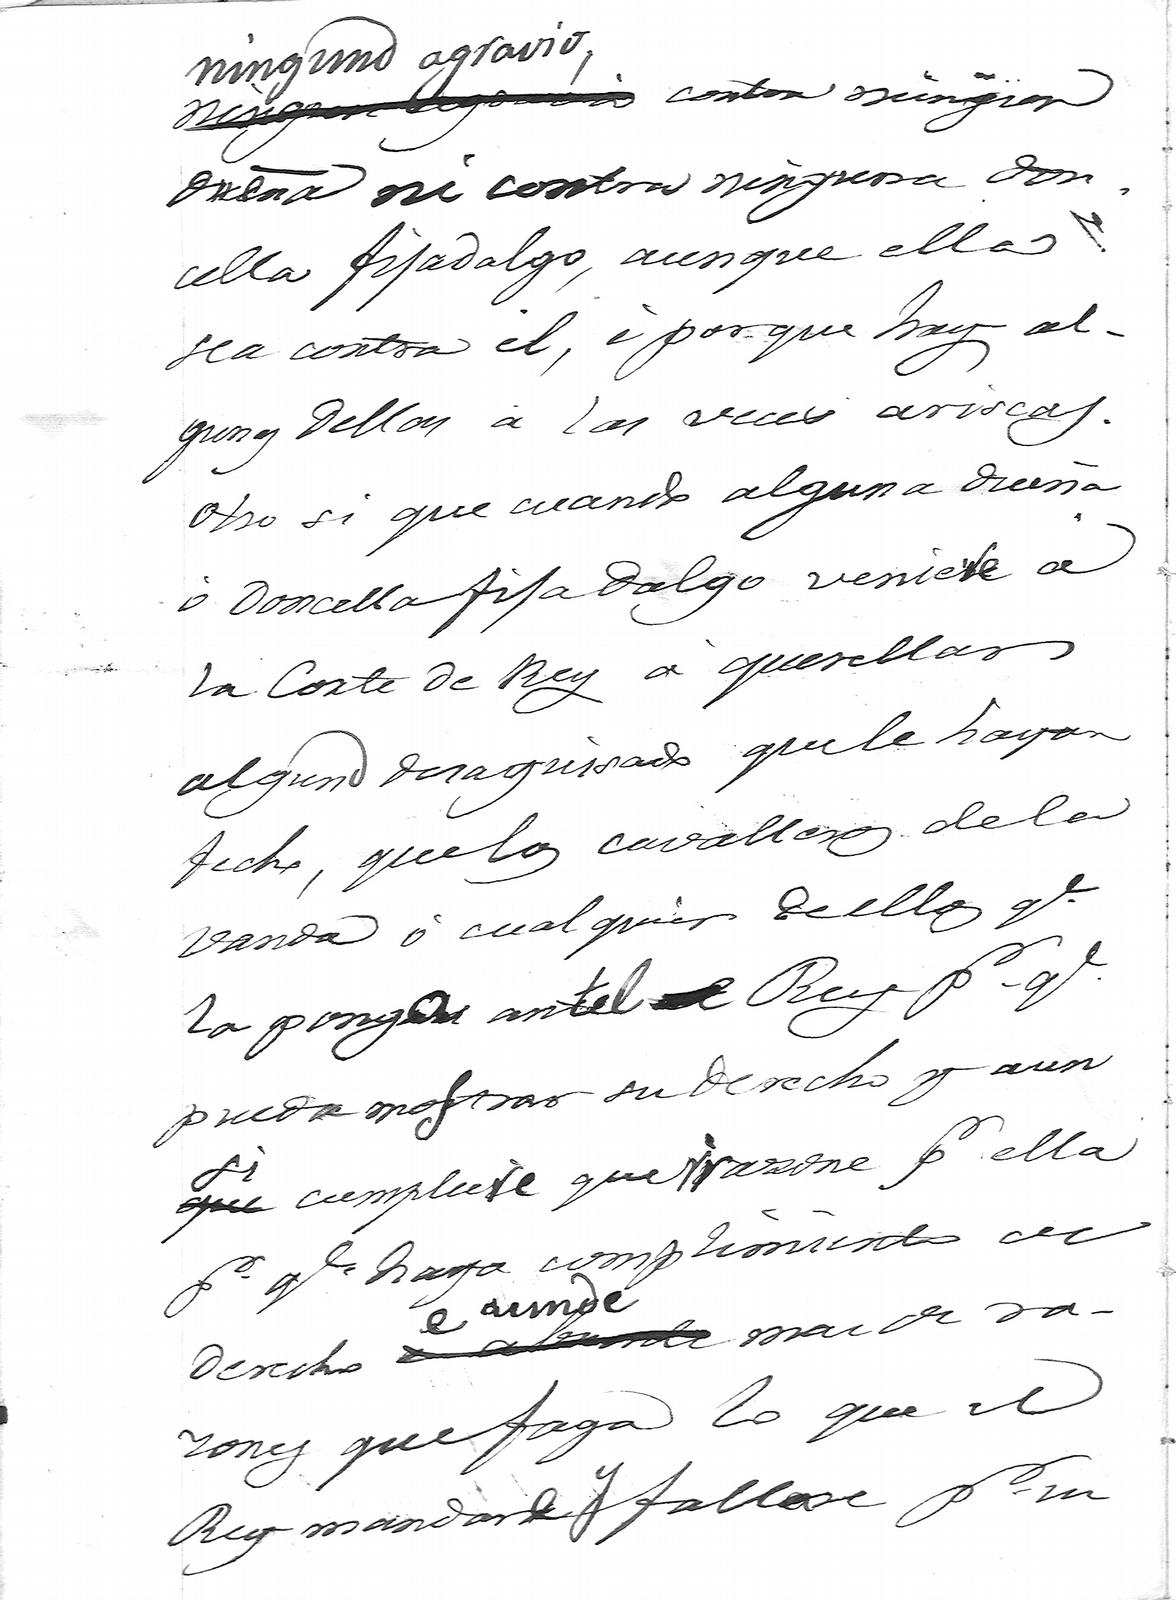 ningund agravio,
ningun agravio contra ningun
dueña ni contra ninguna don-
cella fijadalgo, aunque ella
sea contra el, è porque hay al-
gunas dellas à las veces ariscas.
Otro si que cuando alguna dueña
ò doncella fijadalgo veniese à
la Corte de Rey à querellar
algund desaguisado que le hayan
fecho, que los cavalleros de la
vanda ò cualquier de ellos qe.
la pongan antel Rey pa. qe.
pueda mostrar su derecho y aun
si
que cumpliese que razone pr ella
pa. qe. haya complimiento de
e aunde
derecho è abunde mas de ra-
zones que faga lo que el
Rey mandare y fallare pr. su